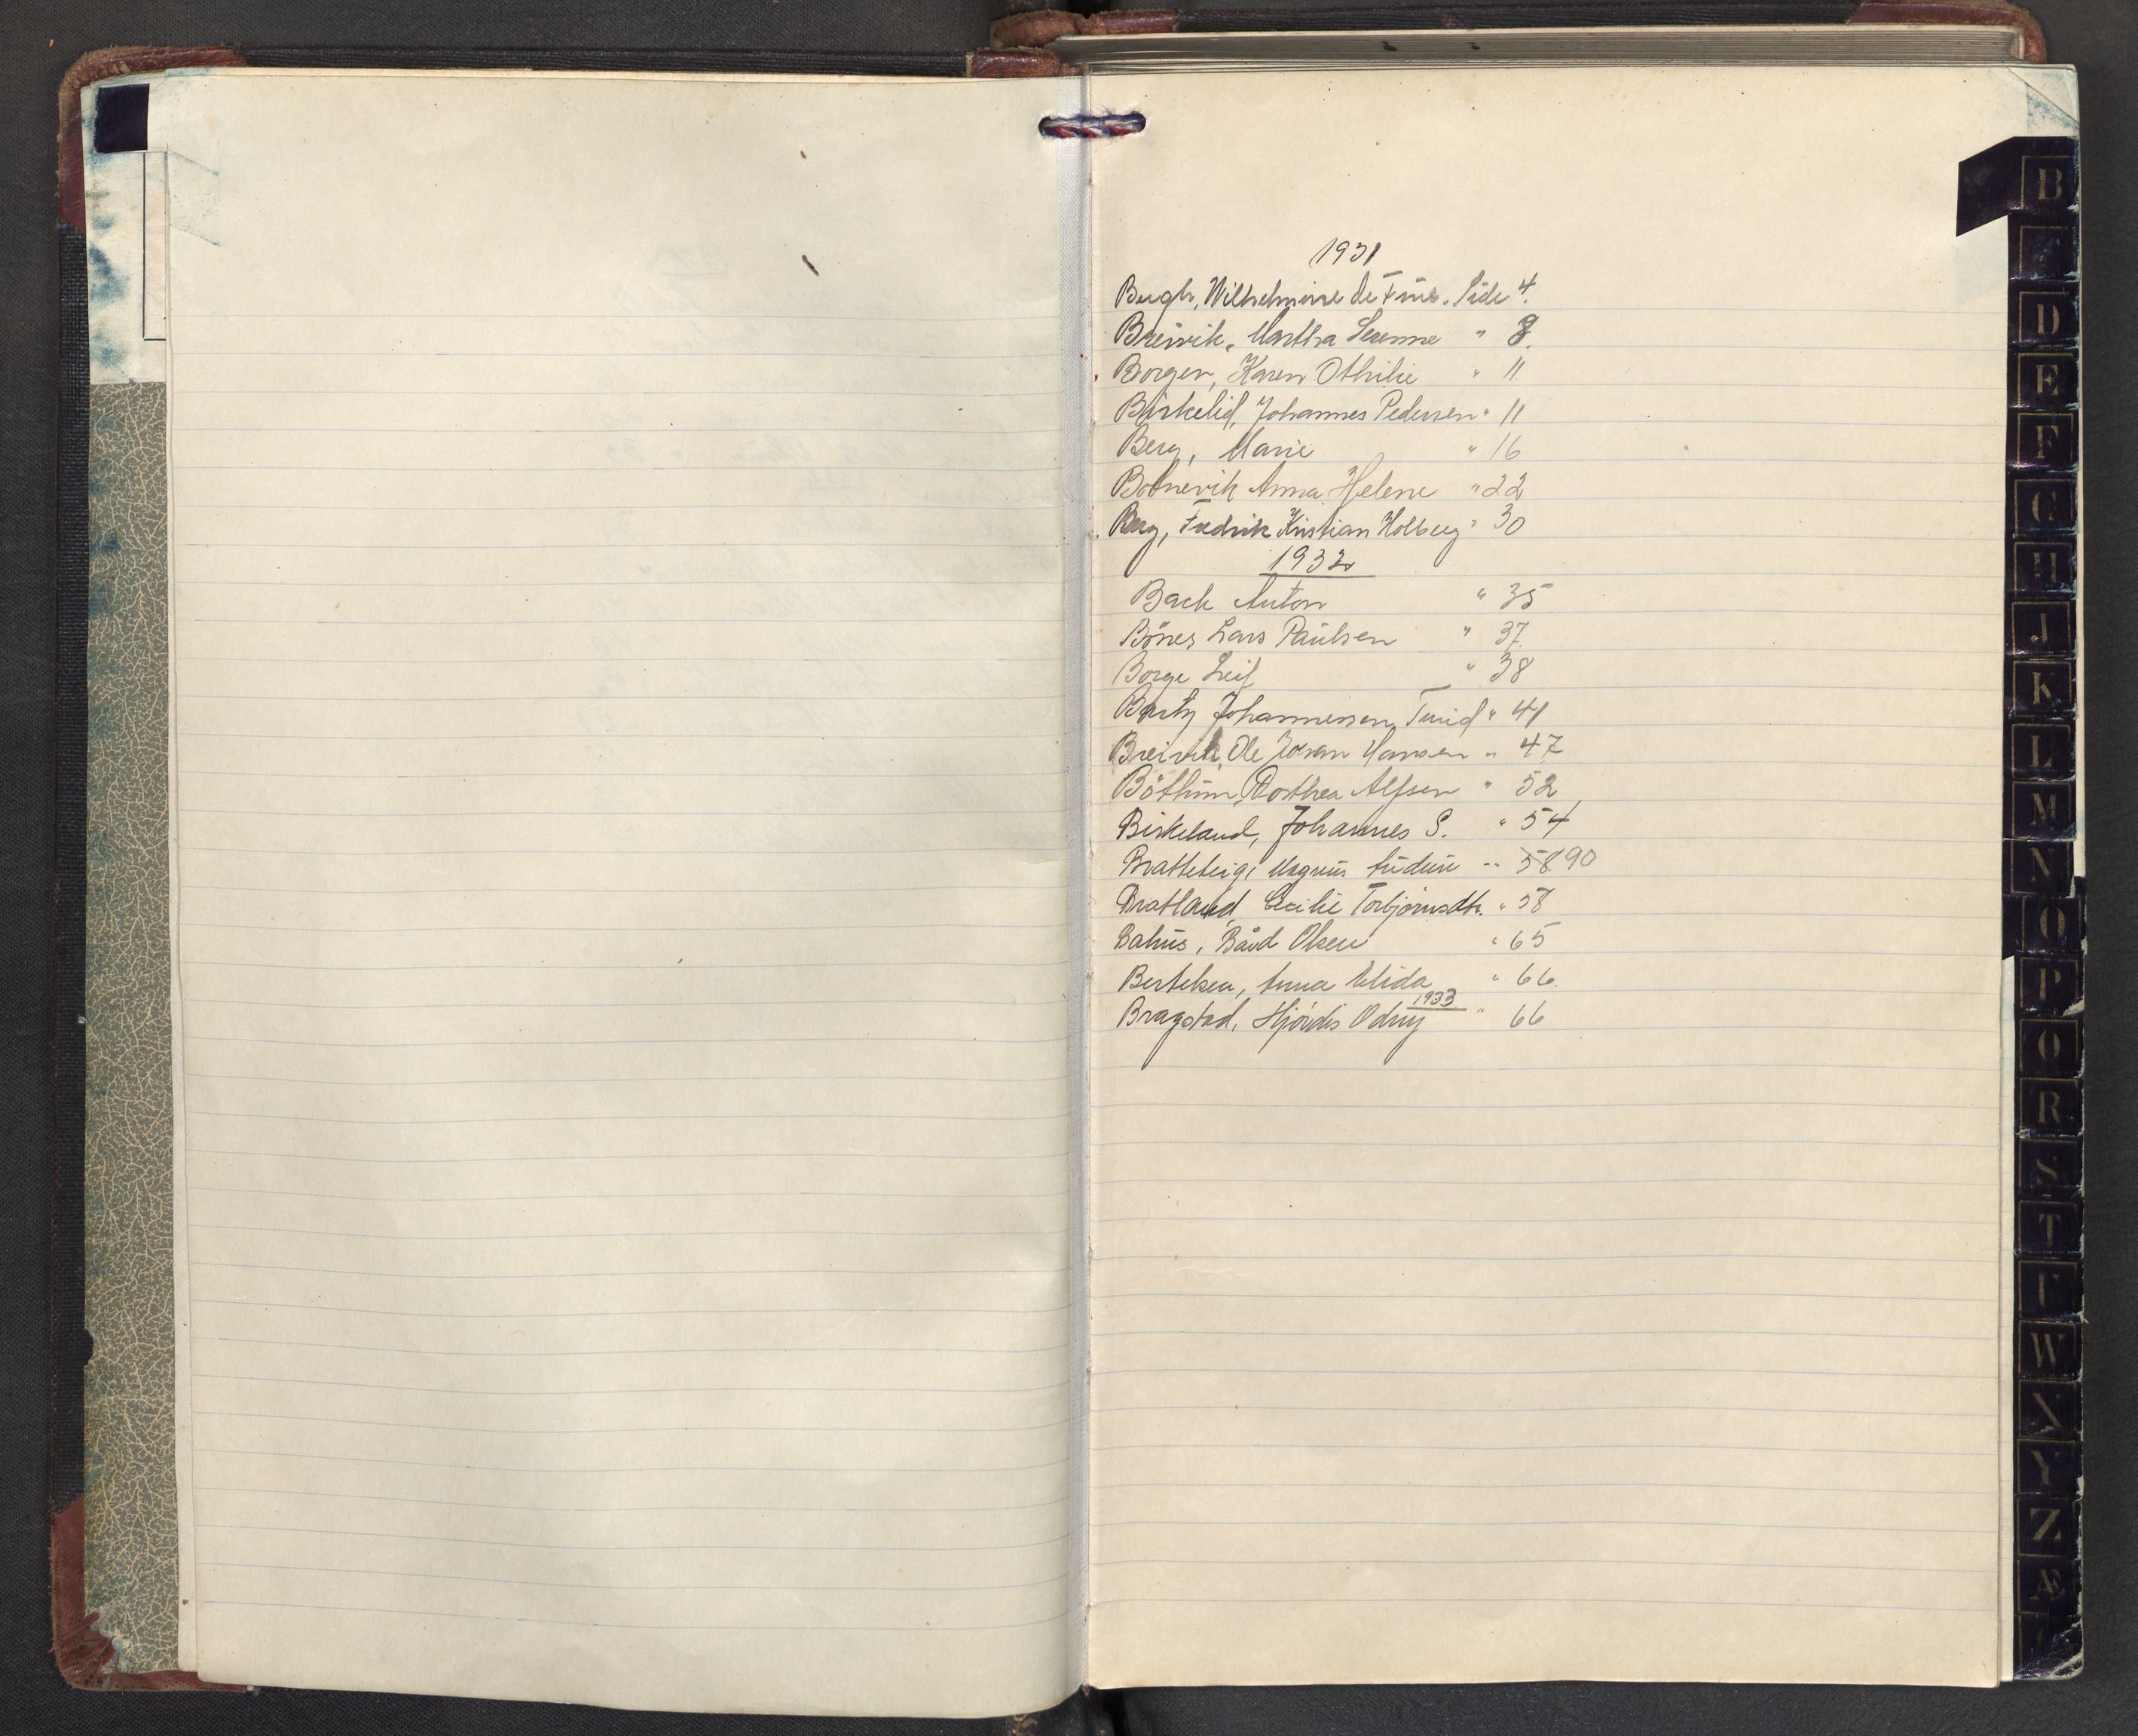 1931
Bergh, Wilhelmine De Fine. Side 4.
Breivik, Martha Serenne " 8.
Borgen, Karen Othilie " 11
Birkelid, Johannes Pedersen " 11
Berg, Marie " 16
Botnevik Anna Helene " 22
Berg, Fredrik Kristian Holberg " 30
1932
Back Anton " 35
Bönes Lars Paulsen " 37.
Borge Leif " 38
Johannessen, Turid " 41
Breivik, Ole Johan Hansen " 47
Böthun, Dorthea Alfsen " 52
Birkeland, Johannes S. " 54
Bratteteig, Magnus " 58 90
Bratland, Cecilie Torbjörnsdtr. " 58
Bahus, Bård Olsen " 65
Bertelsen, Anna Elida " 66.
1933
Bragstad, Hjördis Odny " 66
B
D
E
F
G
H
J
K
L
M
N
O
P
Q
R
S
T
U
W
X
Y
Z
Æ